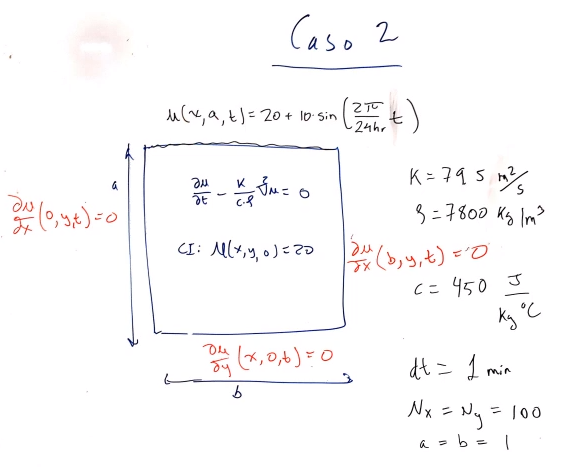 Caso 2
u(x,a,t)=20+10·sin(2π/24hr t)
a
∂u/∂t - K/c·ρ ∇²u = 0
∂u/∂x (0,y,t)=0
CI: u(x,y,0)=20
∂u/∂x (b,y,t)=0
∂u/∂y (x,0,t)=0
b
K = 79 5 m²/s
ρ = 7800 Kg/m³
c = 450 J/Kg °C
dt = 1 min
Nx = Ny = 100
a = b = 1